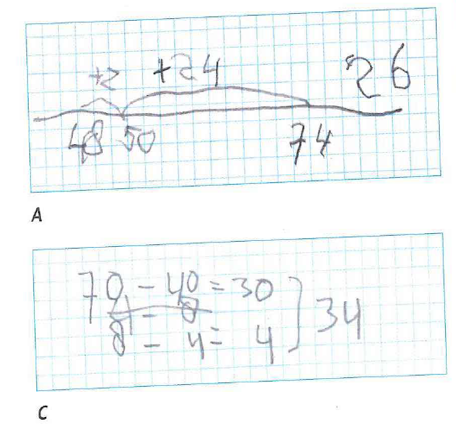 +2 +24 26
48 50 74
A
70 - 40 = 30
8 - 4 = 4
34
C